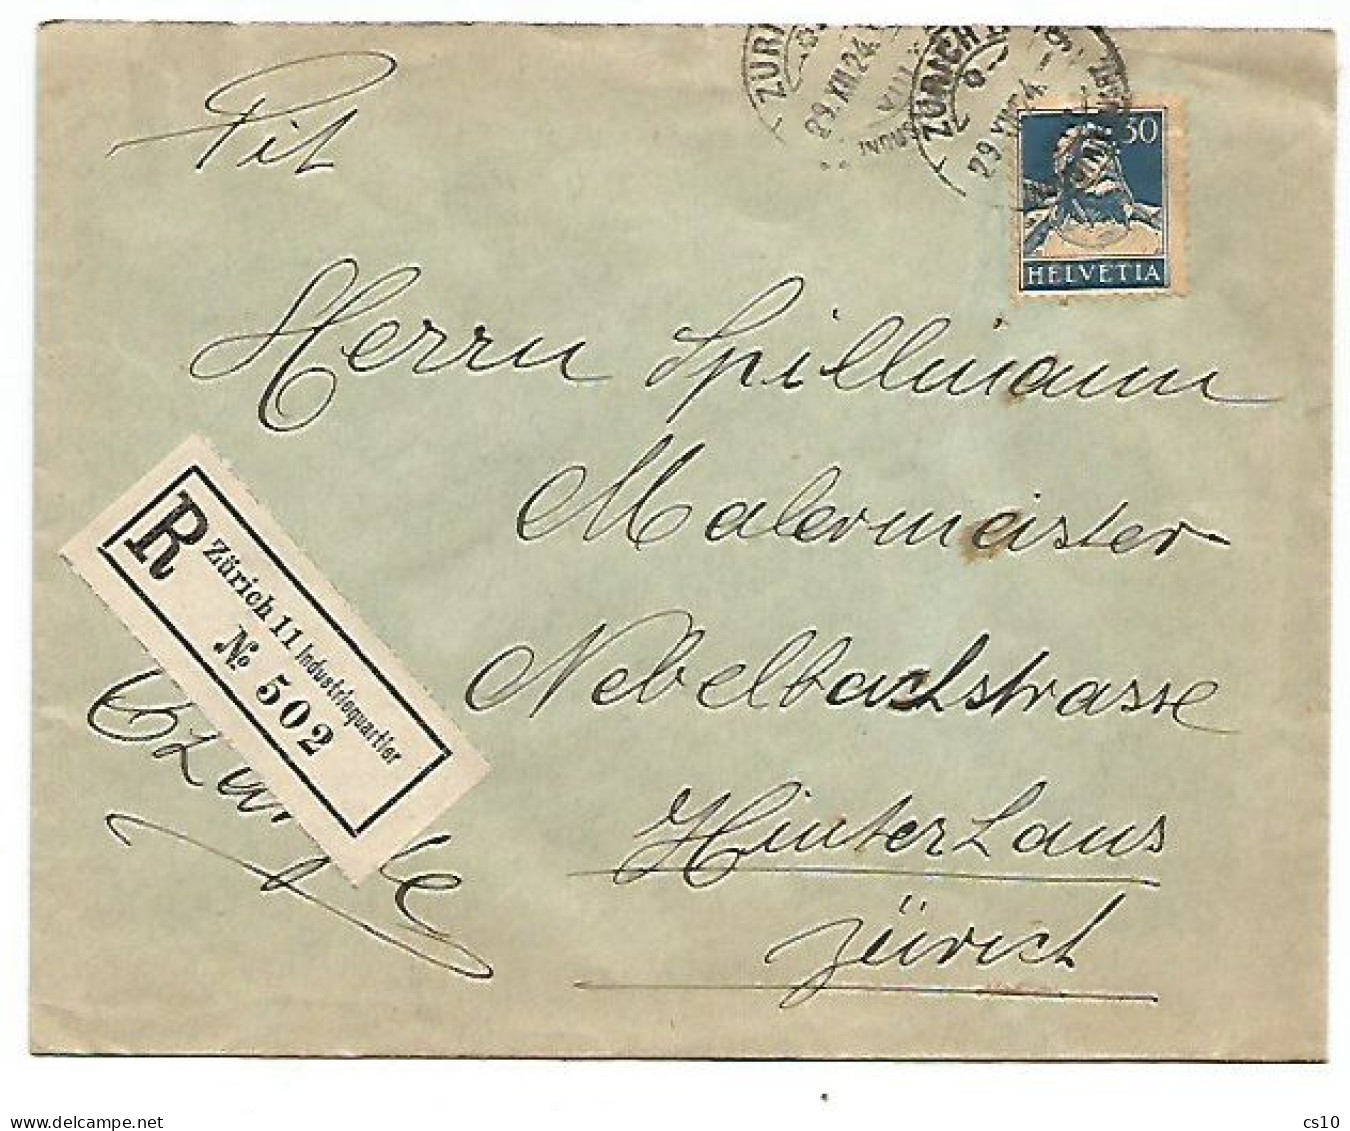 ZÜRICH
29.XII.24.
VIII
INDUS
ZÜRICH
29.XII.24.
30
HELVETIA
Herrn Spillmann
Malermeister
Nebelbachstrasse
Hinterhaus
Zürich
R
Zürich 11 Industriequartier
№ 502
www.delcampe.net
cs10